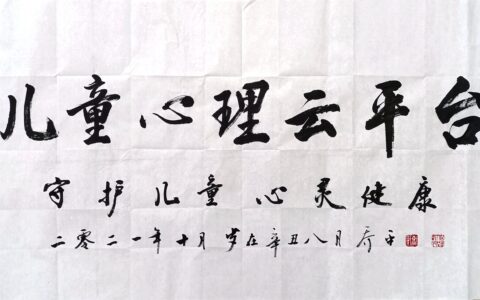 儿童心理云平台
守护儿童心灵健康
二零二一年十月岁在辛丑八月乔平